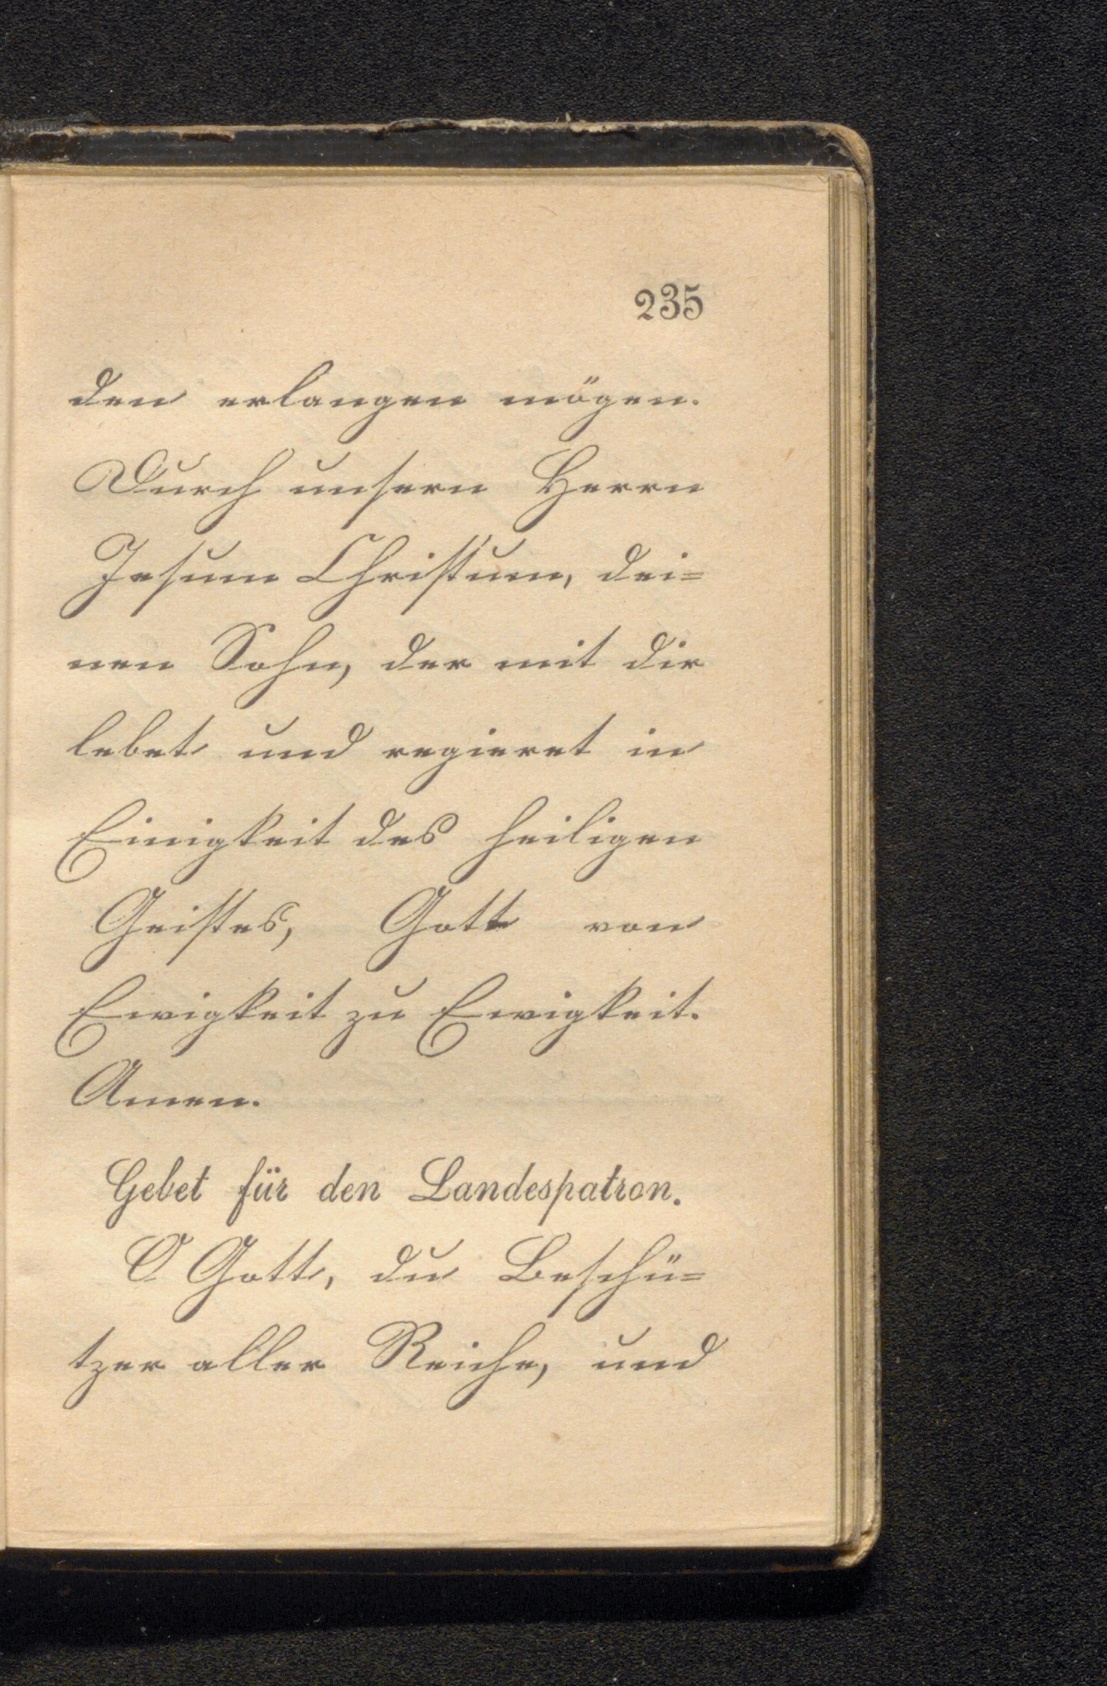 235
den erlangen mögen.
Durch unsern Herrn
Jesum Christum, dei=
nen Sohn, der mit dir
lebet und regieret in
Einigkeit des heiligen
Geistes, Gott von
Ewigkeit zu Ewigkeit.
Amen.
Gebet für den Landespatron.
O Gott, du Beschü=
tzer aller Reiche, und